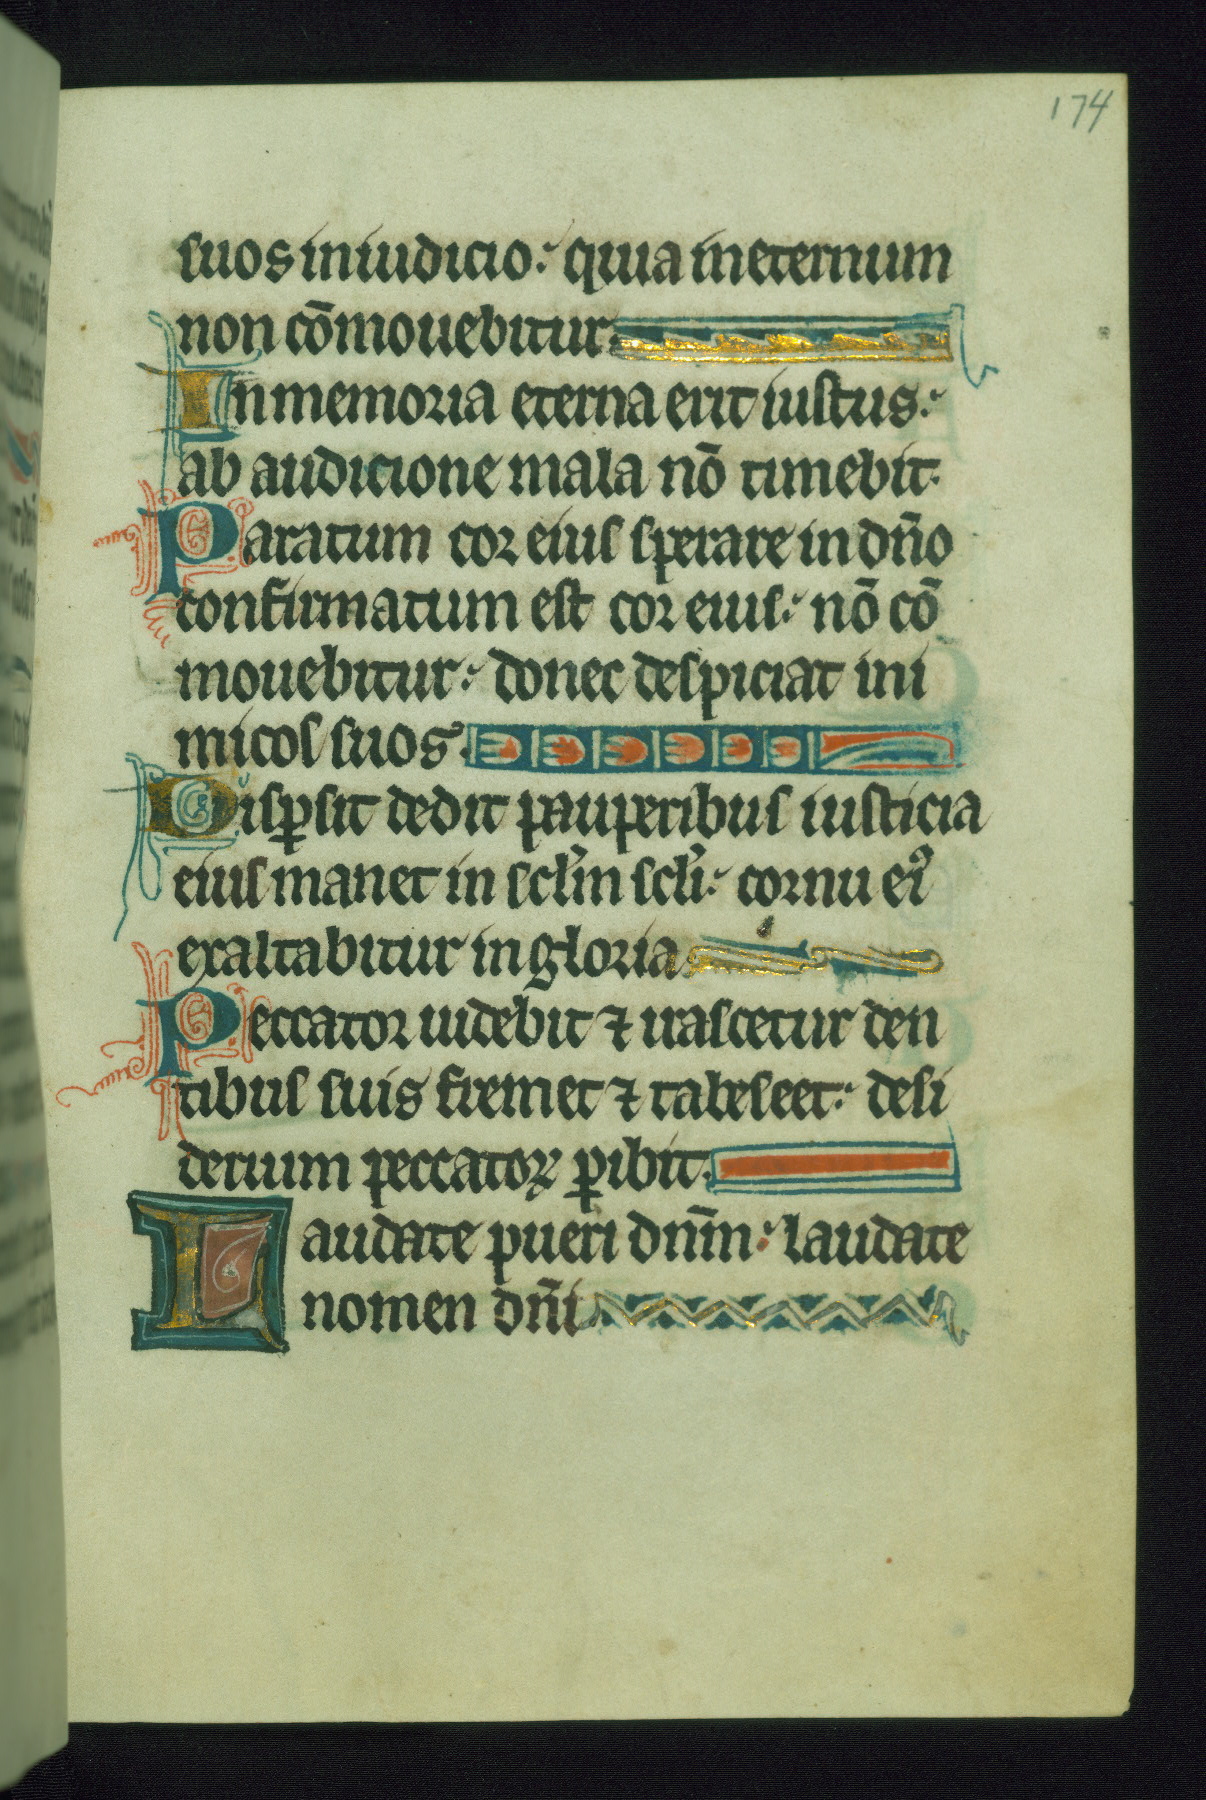 174
suos in iudicio: quia in eternum
non cōmouebitur.
In memoria eterna erit iustus:
ab audicione mala nō timebit.
Paratum cor eius sperare in dn̄o
confirmatum est cor eius: nō cō
mouebitur: donec despiciat ini
micos suos.
Disꝑsit dedit pauperibus iusticia
eius manet in sclm̄ scli̾: cornu eiꝰ
exaltabitur in gloria.
Peccator uidebit ⁊ irascetur den
tibus suis fremet ⁊ tabescet: desi
derium peccatoꝝ ꝑibit.
Laudate pueri dn̄m: laudate
nomen dn̄i